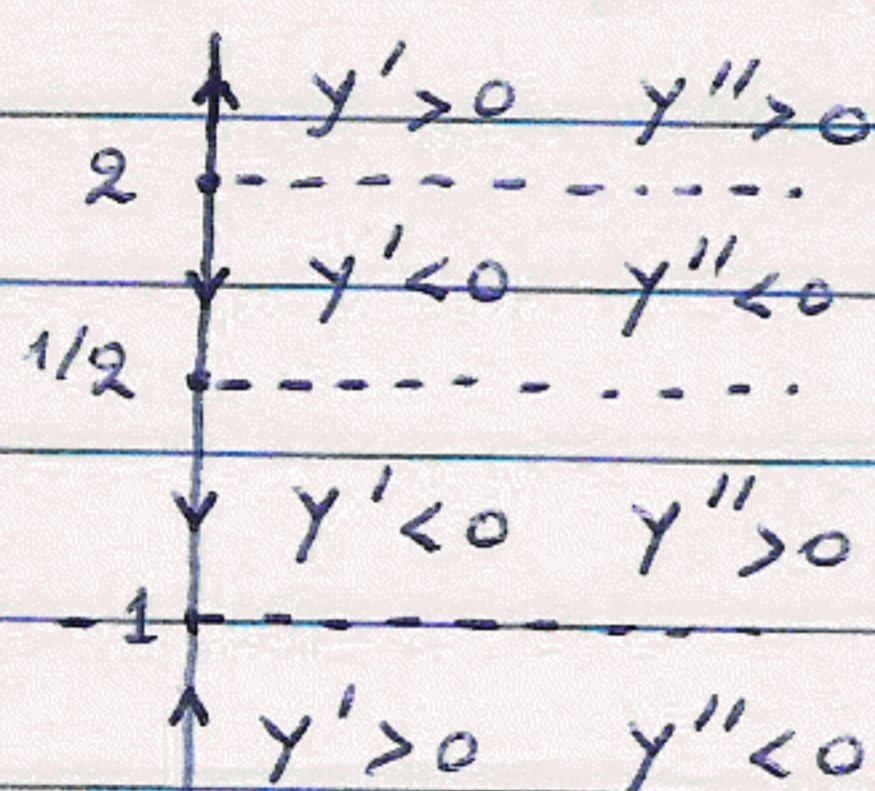 y'>0 y''>0
2
y'<0 y''<0
1/2
y'<0 y''>0
-1
y'>0 y''<0